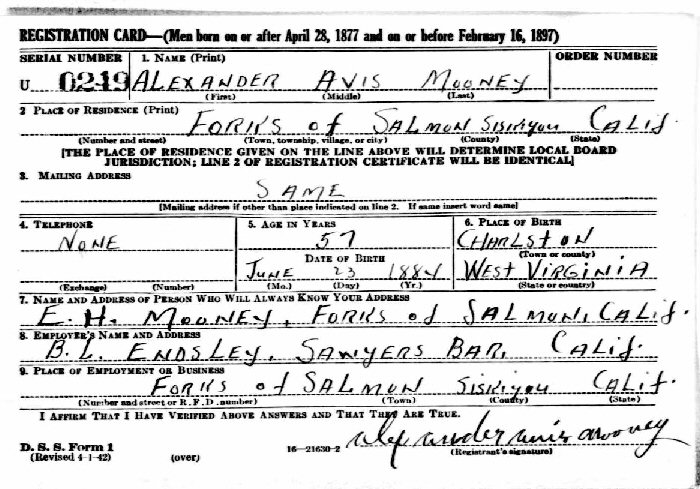 REGISTRATION CARD—(Men born on or after April 28, 1877 and on or before February 16, 1897)
SERIAL NUMBER 1. NAME (Print) ORDER NUMBER
U 0249 ALEXANDER AVIS MOONEY
(First) (Middle) (Last)
2 PLACE OF RESIDENCE (Print)
FORKS of SALMON SISKIYOU CALIF.
(Number and street) (Town, township, village, or city) (County) (State)
[THE PLACE OF RESIDENCE GIVEN ON THE LINE ABOVE WILL DETERMINE LOCAL BOARD
JURISDICTION; LINE 2 OF REGISTRATION CERTIFICATE WILL BE IDENTICAL]
3. MAILING ADDRESS
SAME
[Mailing address if other than place indicated on line 2. If same insert word same]
4. TELEPHONE 5. AGE IN YEARS 6. PLACE OF BIRTH
NONE 57 CHARLSTON
DATE OF BIRTH (Town or county)
JUNE 23 1884 WEST VIRGINIA
(Exchange) (Number) (Mo.) (Day) (Yr.) (State or country)
7. NAME AND ADDRESS OF PERSON WHO WILL ALWAYS KNOW YOUR ADDRESS
E. H. MOONEY, FORKS of SALMON, CALIF.
8. EMPLOYER'S NAME AND ADDRESS
B. L. ENDSLEY, SAWYERS BAR, CALIF.
9. PLACE OF EMPLOYMENT OR BUSINESS
FORKS of SALMON SISKIYOU CALIF.
(Number and street or R. F. D. number) (Town) (County) (State)
I AFFIRM THAT I HAVE VERIFIED ABOVE ANSWERS AND THAT THEY ARE TRUE.
D. S. S. Form 1
(Revised 4-1-42) (over) 16—21630-2 Alexander Avis Mooney
(Registrant's signature)